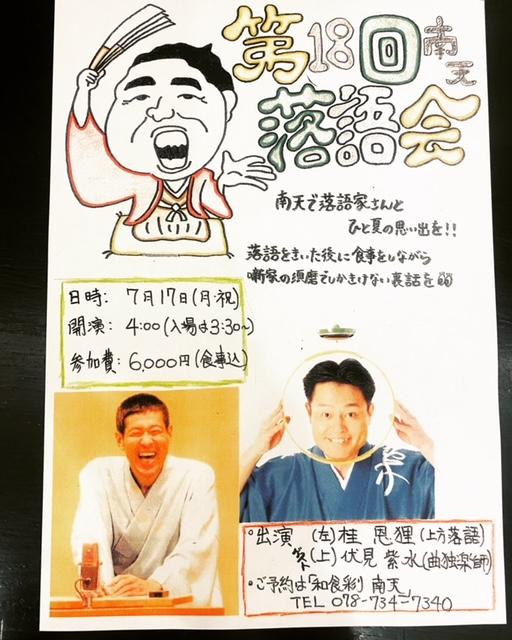 第18回南天
落語会
南天で落語家さんと
ひと夏の思い出を!!
落語をきいた後に食事をしながら
噺家の須磨でしかきけない裏話を
日時: 7月17日(月・祝)
開演: 4:00(入場は3:30〜)
参加費: 6,000円(食事込)
・出演 (左)桂 恩狸(上方落語)
(上)伏見 紫水(曲独楽師)
・ご予約は「和食彩」南天
TEL 078-734-7340